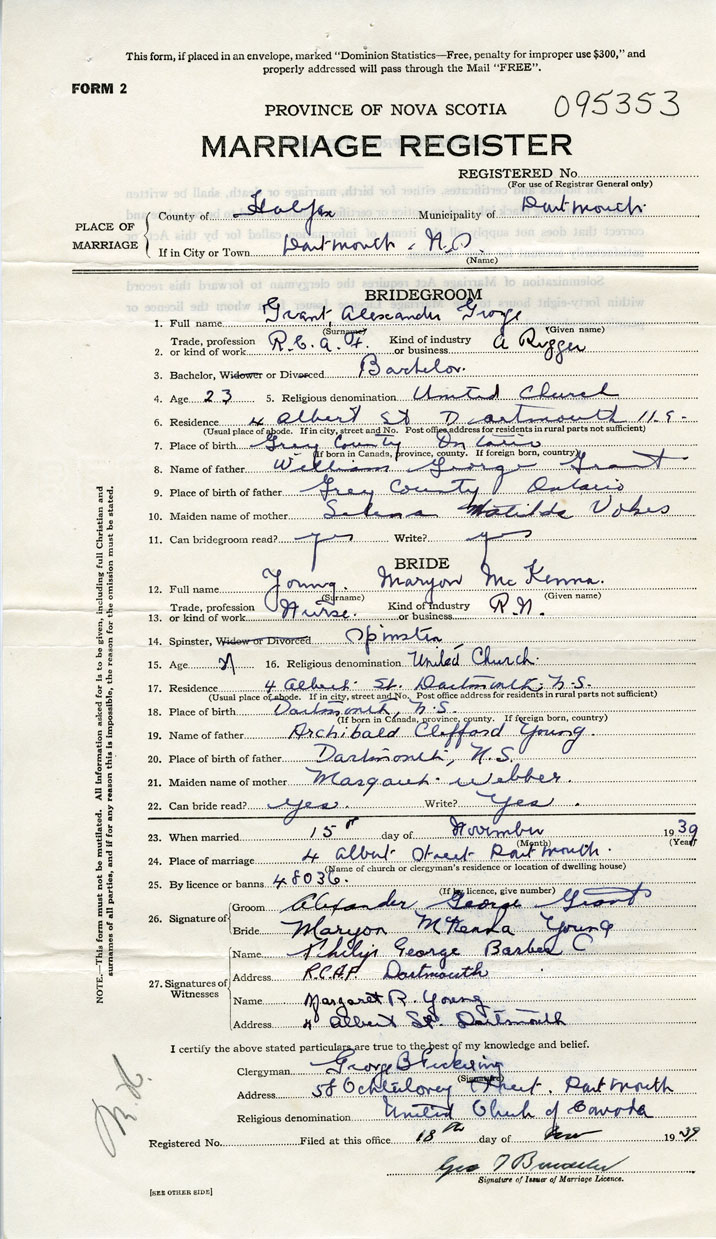 This form, if placed in an envelope, marked "Dominion Statistics—Free, penalty for improper use $300," and
properly addressed will pass through the Mail "FREE".
FORM 2
PROVINCE OF NOVA SCOTIA 095353
MARRIAGE REGISTER
REGISTERED No.
(For use of Registrar General only)
PLACE OF MARRIAGE
County of Halifax Municipality of Dartmouth
If in City or Town Dartmouth, N.S.
(Name)
BRIDEGROOM
1. Full name Grant Alexander George
(Surname) (Given name)
2. Trade, profession or kind of work R.C.A.F. Kind of industry or business A Rigger
3. Bachelor, Widower or Divorced Bachelor.
4. Age 23 5. Religious denomination United Church
6. Residence 4 Albert St Dartmouth N.S.
(Usual place of abode. If in city, street and No. Post office address for residents in rural parts not sufficient)
7. Place of birth Grey County Ontario
(If born in Canada, province, county. If foreign born, country)
8. Name of father William George Grant
9. Place of birth of father Grey County Ontario
10. Maiden name of mother Selena Matilda Vokes
11. Can bridegroom read? yes Write? yes
BRIDE
12. Full name Young. Maryon McKenna.
(Surname) (Given name)
13. Trade, profession or kind of work Nurse. Kind of industry or business R.N.
14. Spinster, Widow or Divorced Spinster
15. Age 16. Religious denomination United Church.
17. Residence 4 Albert St. Dartmouth, N.S.
(Usual place of abode. If in city, street and No. Post office address for residents in rural parts not sufficient)
18. Place of birth Dartmouth, N.S.
(If born in Canada, province, county. If foreign born, country)
19. Name of father Archibald Clifford Young.
20. Place of birth of father Dartmouth, N.S.
21. Maiden name of mother Margaret Webber.
22. Can bride read? Yes. Write? Yes.
23. When married 15th day of November 1939
(Month) (Year)
24. Place of marriage 4 Albert Street Dartmouth.
(Name of church or clergyman's residence or location of dwelling house)
25. By licence or banns 48036.
(If by licence, give number)
26. Signature of
Groom Alexander George Grant
Bride Maryon McKenna Young
27. Signatures of Witnesses
Name Philip George Barber C
Address R.C.A.F Dartmouth
Name Margaret R. Young
Address 4 Albert St. Dartmouth
I certify the above stated particulars are true to the best of my knowledge and belief.
Clergyman George B Pickering
(Signature)
Address 58 Ochterloney Street. Dartmouth
Religious denomination United Church of Canada
Registered No. Filed at this office 18th day of Nov 1939
Geo
Signature of Issuer of Marriage Licence.
[SEE OTHER SIDE]
NOTE.—This form must not be mutilated. All information asked for is to be given, including full Christian and
surnames of all parties, and if for any reason this is impossible, the reason for the omission must be stated.